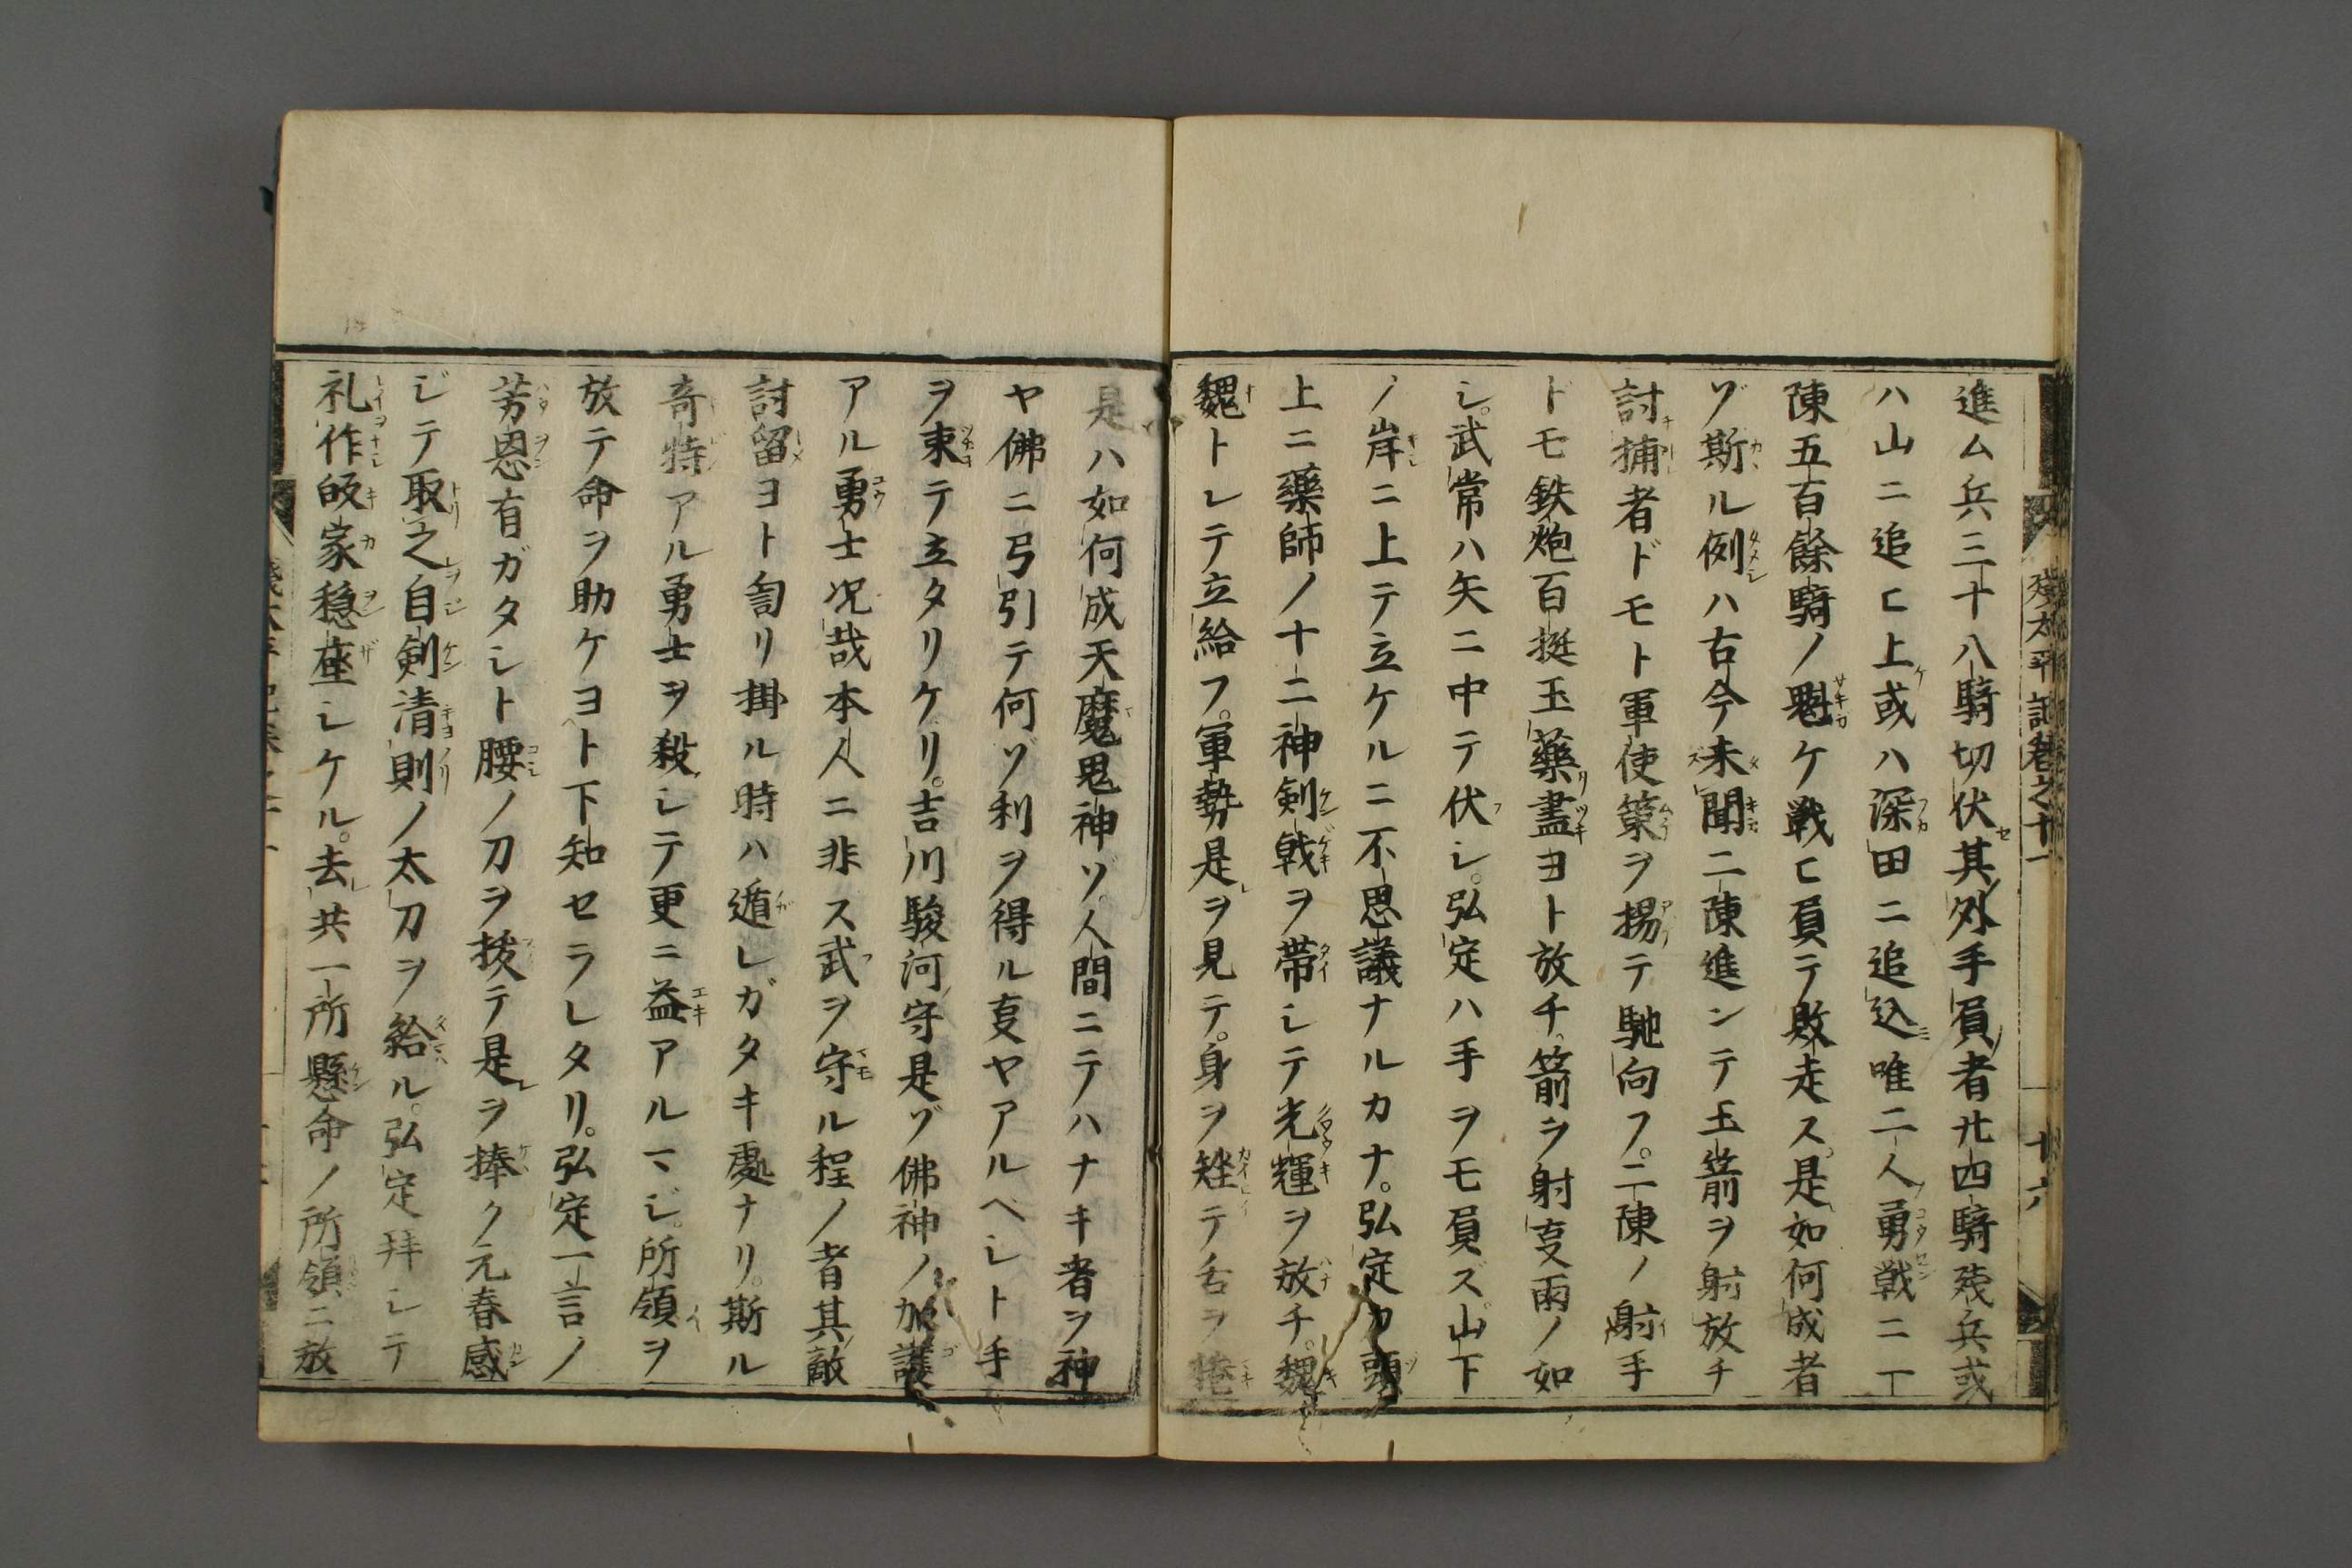 進ム兵三十八騎切伏其外手負者廿四騎残兵或
ハ山ニ追ヒ上或ハ深田ニ追込唯二人勇戦ニ丁
陳五百餘騎ノ魁ケ戦ヒ負テ敗走ス。是如何成者
ゾ斯ル例ハ古今未聞二陳進ンテ玉箭ヲ射放チ
討捕者ドモト軍使策ヲ揚テ馳向フ。二陳ノ射手
ドモ鉄炮百挺玉藥盡ヨト放チ。箭ヲ射叓雨ノ如
シ。武常ハ矢ニ中テ伏シ。弘定ハ手ヲモ負ズ山下
ノ岸ニ上テ立ケルニ不思議ナルカナ。弘定カ頭
上ニ藥師ノ十二神剣戟ヲ帯シテ光輝ヲ放チ。魏
魏トシテ立給フ。軍勢是ヲ見テ。身ヲ矬テ舌ヲ捲
是ハ如何成天魔鬼神ゾ。人間ニテハナキ者ヲ神
ヤ佛ニ弓引テ何ゾ利ヲ得ル叓ヤアルベシト手
ヲ束テ立タリケリ。吉川駿河守是ゾ佛神ノ加護
アル勇士况哉本人ニ非ス武ヲ守ル程ノ者其敵
討留ヨト訇リ掛ル時ハ遁レガタキ處ナリ。斯ル
奇特アル勇士ヲ殺シテ更ニ益アルマジ。所領ヲ
放テ命ヲ助ケヨト下知セラレタリ。弘定一言ノ
芳恩有ガタシト腰ノ刀ヲ拔テ是ヲ捧ク元春感
ジテ取之自剣清則ノ太刀ヲ給ル。弘定拜シテ
礼作皈家穏座シケル。去共一所懸命ノ所領ニ放
残太平記巻之十一
十六